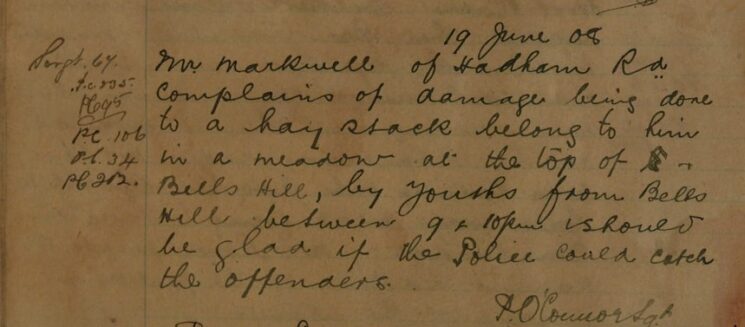 19 June 08
Sergt. 67.
Mr. Markwell of Hadham Rd
P.c. 235.
complains of damage being done
Pc 95
to a hay stack belong to him
PC. 106
in a meadow at the top of
P.C. 34
Bells Hill, by youths from Bells
PC 212.
Hill between 9 & 10pm & should
be glad if the Police could catch
the offenders.
P. O'Connor Sgt